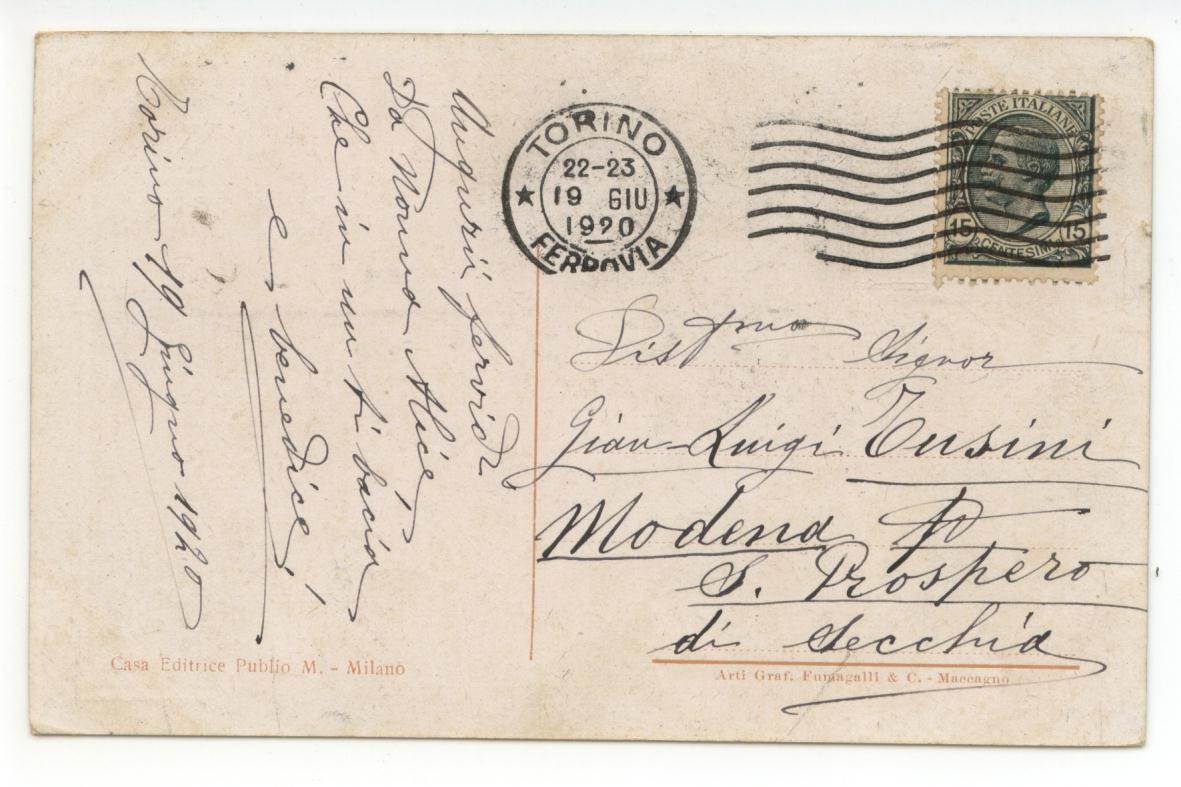 Torino 19 Giugno 1920
Augurii fervidi
Da Nonna Alice
Che in un ti bacia
e benedice!
TORINO
22-23
19 GIU
1920
FERROVIA
POSTE ITALIANE
15 15
CENTESIMI
Distmo Signor
Gian-Luigi Tusini
Modena
S. Prospero
di Secchia
Casa Editrice Publio M. - Milano
Arti Graf. Fumagalli & C. - Maccagno